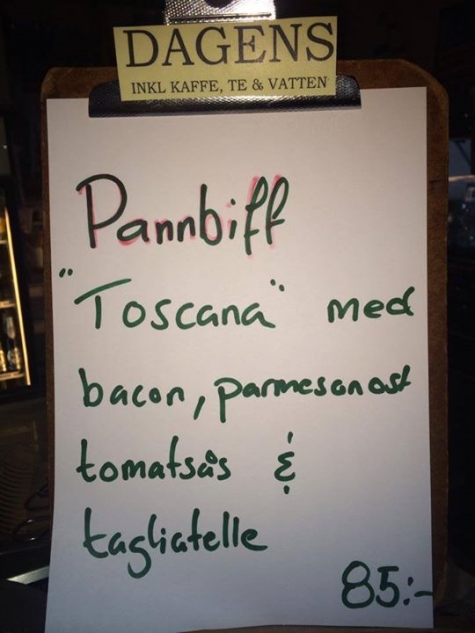 DAGENS
INKL KAFFE, TE & VATTEN
Pannbiff
"Toscana" med
bacon, parmesanost
tomatsås &
tagliatelle
85:-